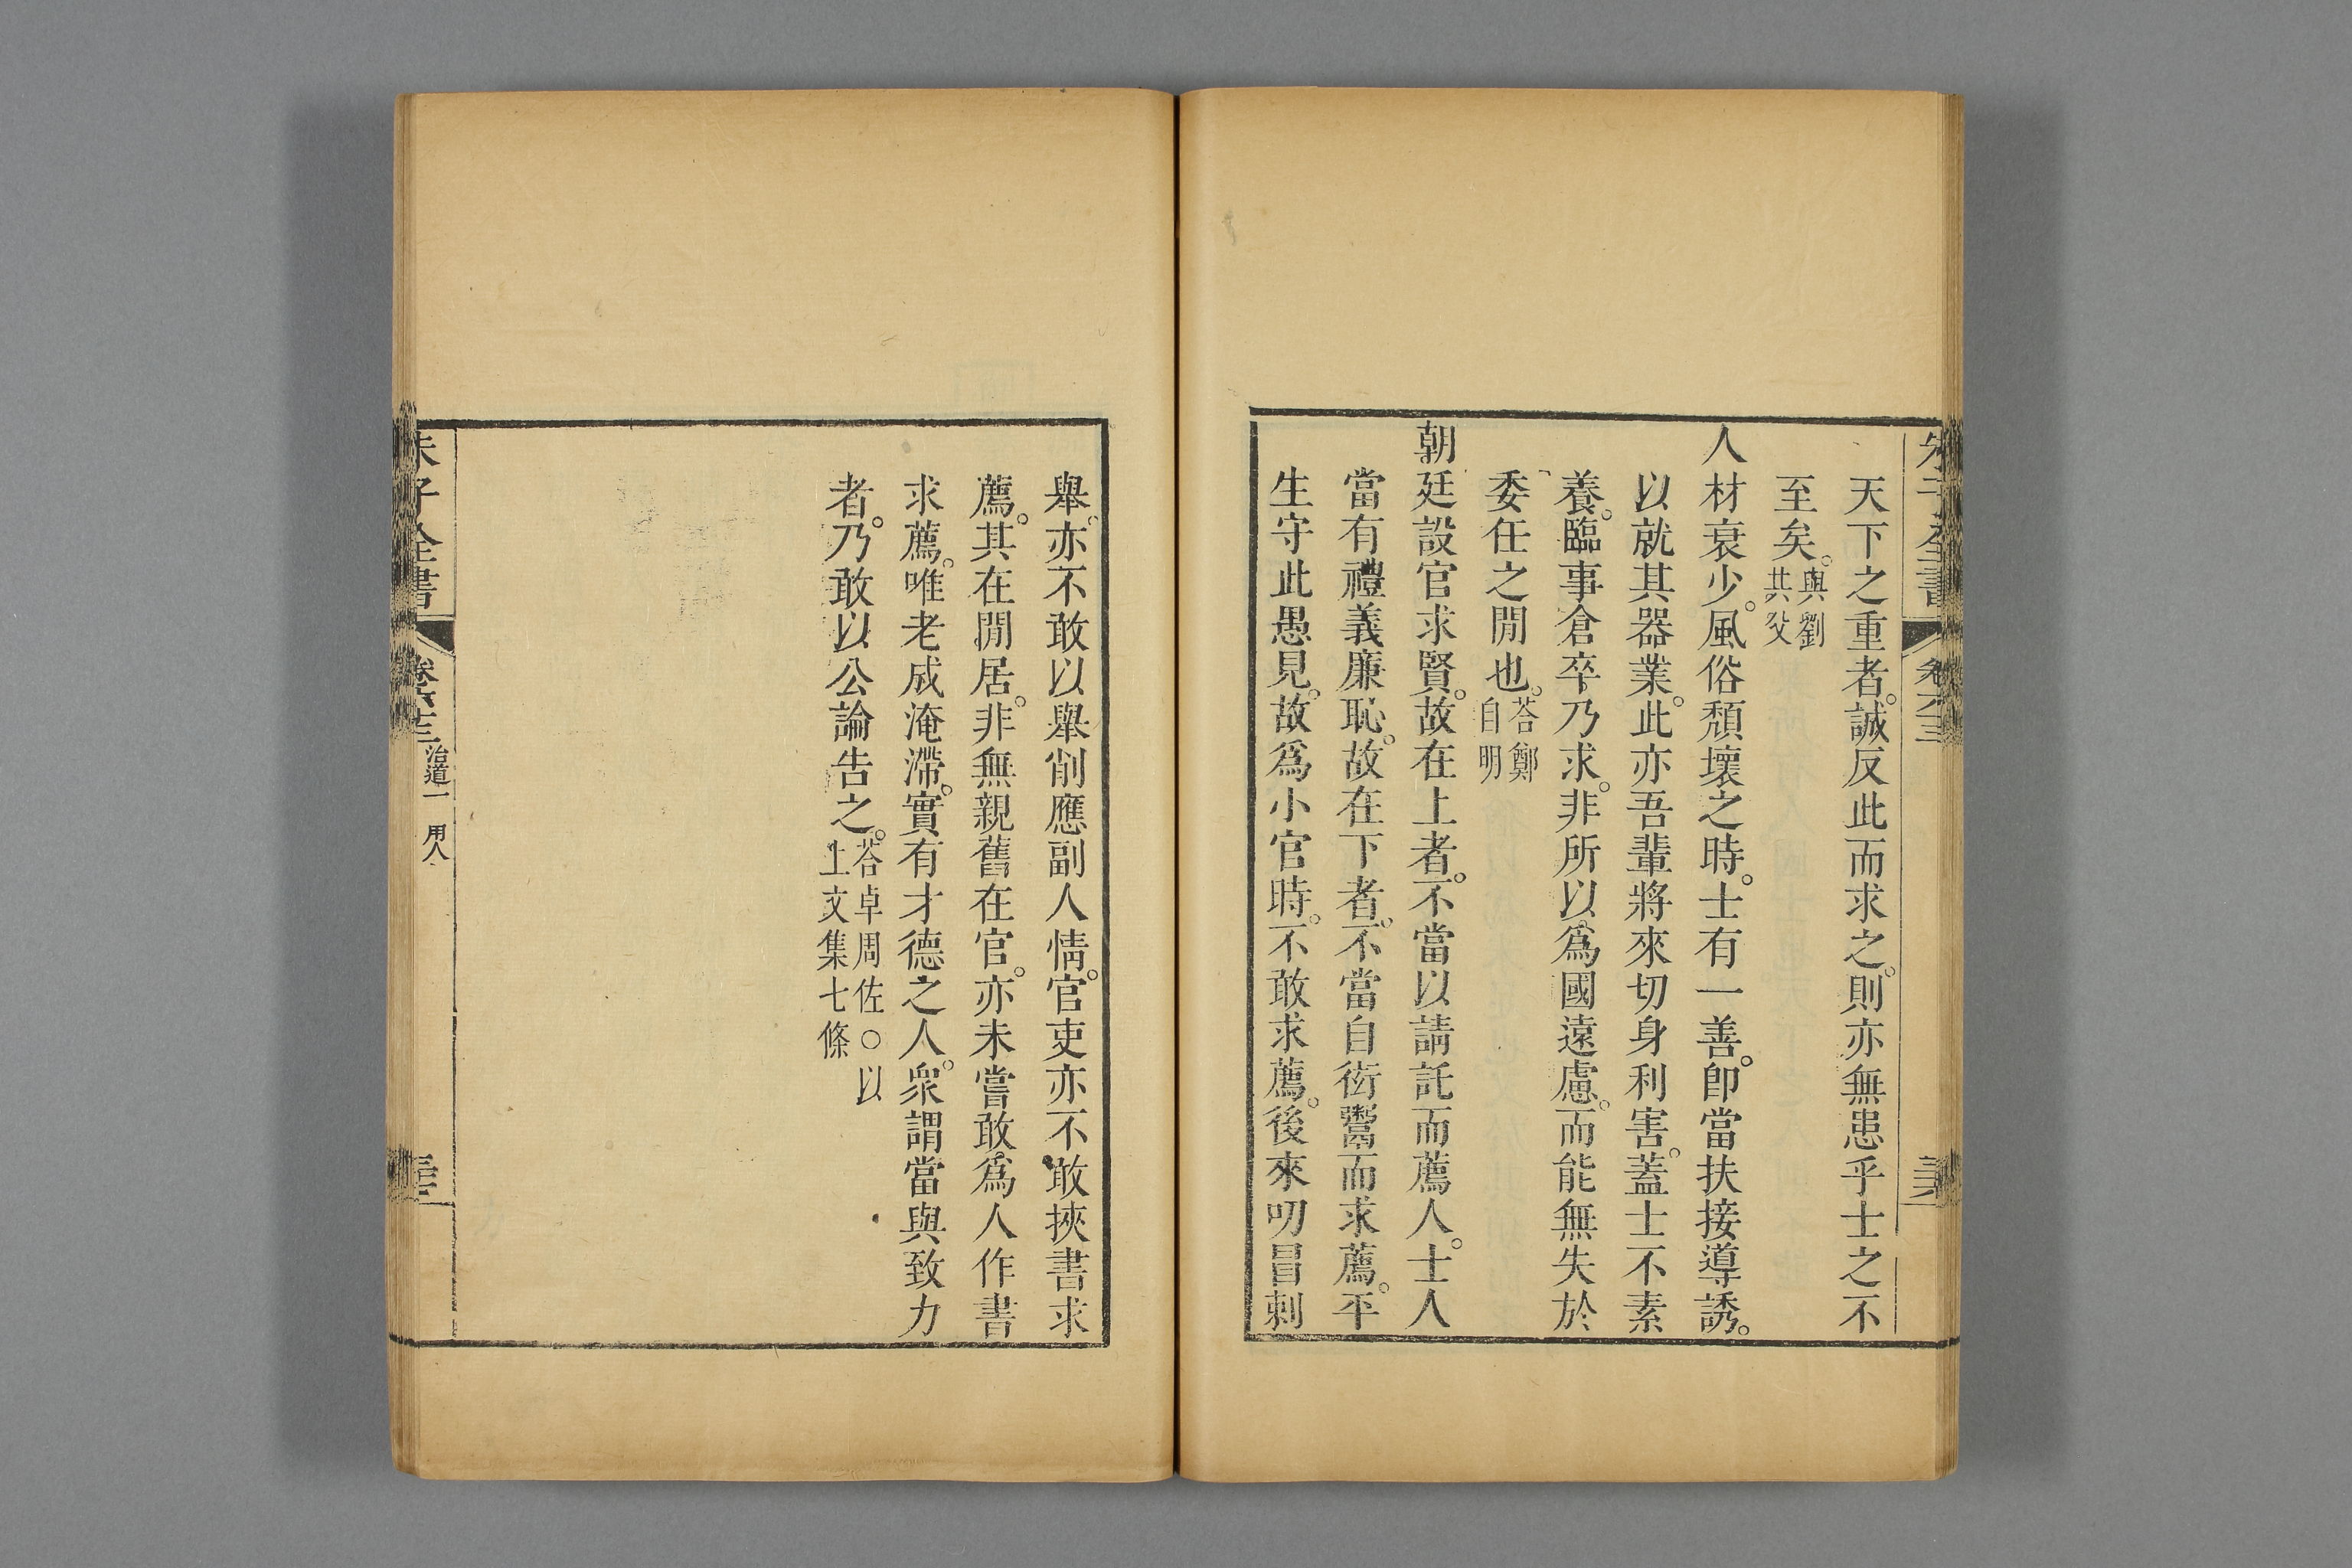 天下之重者。誠反此而求之。則亦無患乎士之不
至矣。與劉共父
人材衰少。風俗頹壞之時。士有一善。卽當扶接導誘。
以就其器業。此亦吾輩將來切身利害。蓋士不素
養。臨事倉卒乃求。非所以爲國遠慮。而能無失於
委任之閒也。荅鄭自明
朝廷設官求賢。故在上者。不當以請託而薦人。士人
當有禮義廉恥。故在下者。不當自衒鬻而求薦。平
生守此愚見。故爲小官時。不敢求薦。後來叨冒刺
舉。亦不敢以舉削應副人情。官吏亦不敢挾書求
薦。其在閒居。非無親舊在官。亦未嘗敢爲人作書
求薦。唯老成淹滯。實有才德之人。衆謂當與致力
者。乃敢以公論告之。荅卓周佐○以上文集七條
朱子全書 卷六十三 治道一 用人